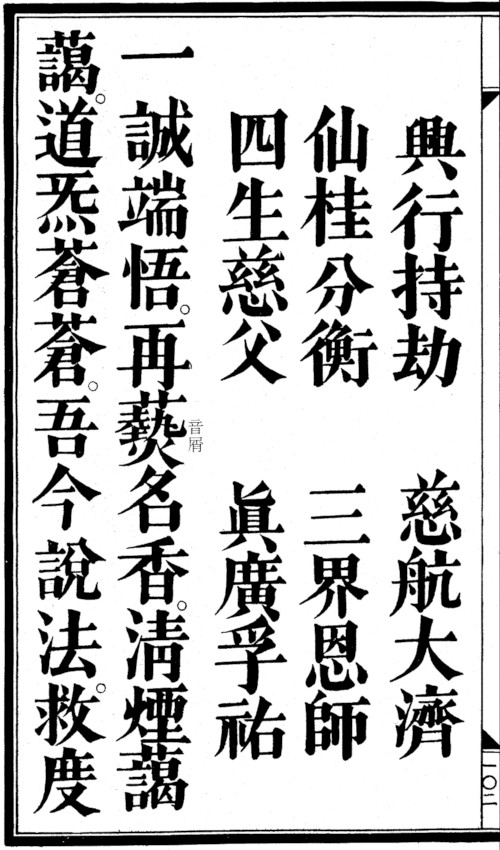 興行持劫　慈航大濟
仙桂分衡　三界恩師
四生慈父　眞廣孚祐
一誠端悟。再爇音屑名香。清煙藹
藹。道炁蒼蒼。吾今說法。救度
一〇二